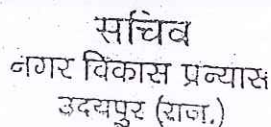 सचिव
नगर विकास प्रन्यास
उदयपुर (राज.)